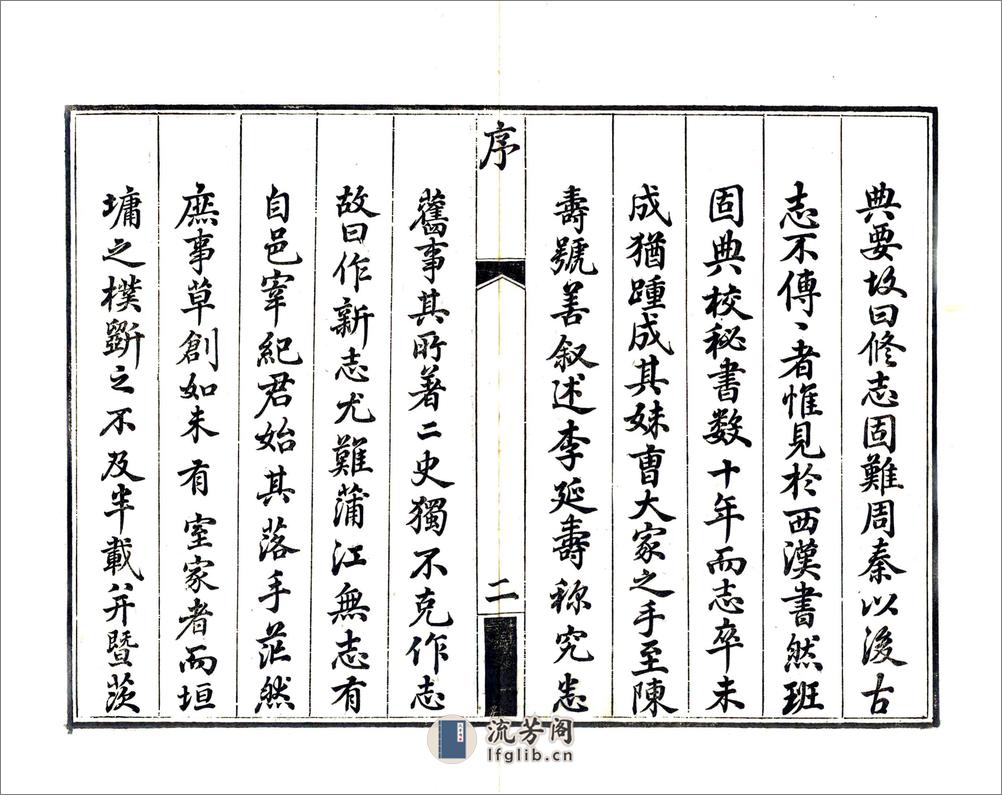 典要故曰修志固難周秦以後古
志不傳〻者惟見於西漢書然班
固典校秘書数十年而志卒未
成猶踵成其妹曹大家之手至陳
壽號善叙述李延壽称究悉
序
二
舊事其所著二史獨不克作志
故曰作新志尤難蒲江無志有
自邑宰紀君始其落手茫然
庶事草創如未有室家者而垣
墉之樸斲之不及半載并暨茨
流芳阁
lfglib.cn